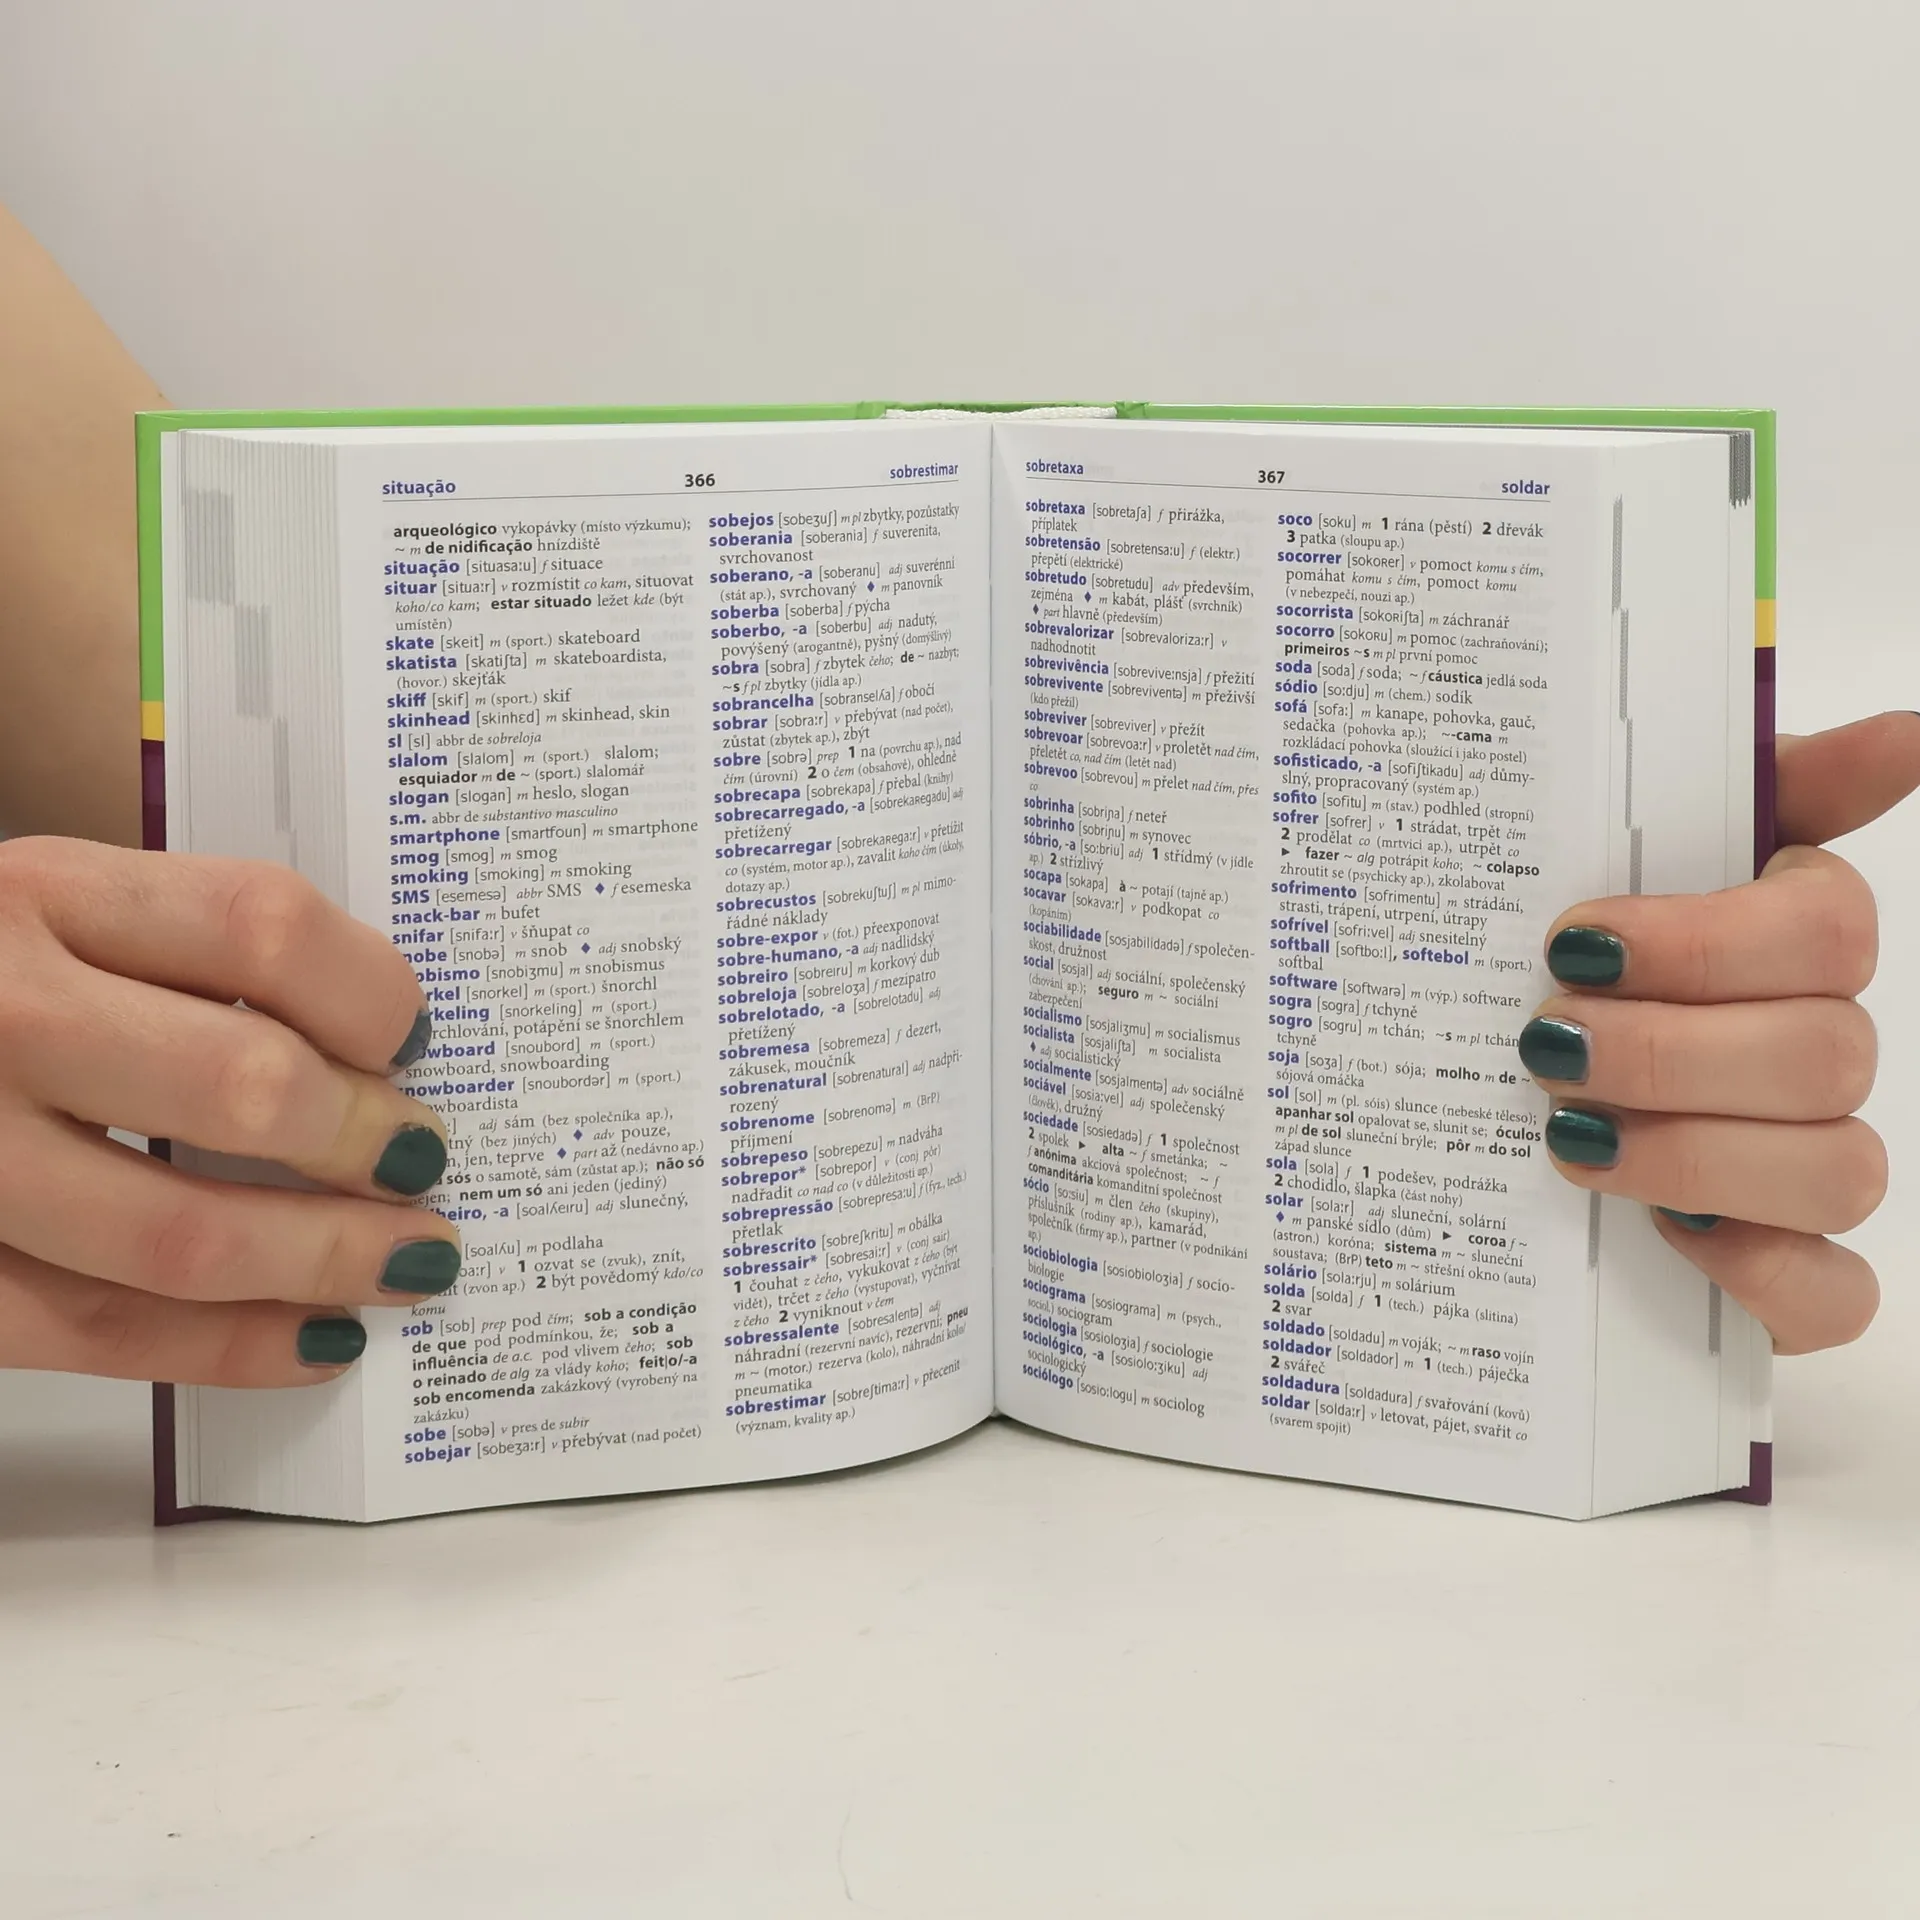 situação 366 sobrestimar
arqueológico vykopávky (místo výzkumu);
~ m de nidificação hnízdiště
situação [situasa:u] f situace
situar [situa:r] v rozmístit co kam, situovat
koho/co kam; estar situado ležet kde (být
umístěn)
skate [skeit] m (sport.) skateboard
skatista [skatiʃta] m skateboardista,
(hovor.) skejťák
skiff [skif] m (sport.) skif
skinhead [skinhɛd] m skinhead, skin
sl [sl] abbr de sobreloja
slalom [slalom] m (sport.) slalom;
esquiador m de ~ (sport.) slalomář
slogan [slogan] m heslo, slogan
s.m. abbr de substantivo masculino
smartphone [smartfoun] m smartphone
smog [smog] m smog
smoking [smoking] m smoking
SMS [esemesə] abbr SMS ♦ f esemeska
snack-bar m bufet
snifar [snifa:r] v šňupat co
nobe [snobə] m snob ♦ adj snobský
obismo [snobiʒmu] m snobismus
rkel [snorkel] m (sport.) šnorchl
rkeling [snorkeling] m (sport.)
rchlování, potápění se šnorchlem
owboard [snoubord] m (sport.)
snowboard, snowboarding
nowboarder [snoubordər] m (sport.)
owboardista
:] adj sám (bez společníka ap.),
tný (bez jiných) ♦ adv pouze,
n, jen, teprve ♦ part až (nedávno ap.)
sós o samotě, sám (zůstat ap.); não só
nejen; nem um só ani jeden (jediný)
heiro, -a [soalʎeıru] adj slunečný,
[soalʎu] m podlaha
oa:r] v 1 ozvat se (zvuk), znít,
it (zvon ap.) 2 být povědomý kdo/co
komu
sob [sob] prep pod čím; sob a condição
de que pod podmínkou, že; sob a
influência de a.c. pod vlivem čeho; sob
o reinado de alg za vlády koho; feit|o/-a
sob encomenda zakázkový (vyrobený na
zakázku)
sobe [sobə] v pres de subir
sobejar [sobeʒa:r] v přebývat (nad počet)
sobejos [sobeʒuʃ] m pl zbytky, pozůstatky
soberania [soberania] f suverenita,
svrchovanost
soberano, -a [soberanu] adj suverénní
(stát ap.), svrchovaný ♦ m panovník
soberba [soberba] f pýcha
soberbo, -a [soberbu] adj nadutý,
povýšený (arogantně), pyšný (domýšlivý)
sobra [sobra] f zbytek čeho; de ~ nazbyt;
~s f pl zbytky (jídla ap.)
sobrancelha [sobranselʎa] f obočí
sobrar [sobra:r] v přebývat (nad počet),
zůstat (zbytek ap.), zbýt
sobre [sobrə] prep 1 na (povrchu ap.), nad
čím (úrovní) 2 o čem (obsahově), ohledně
sobrecapa [sobrekapa] f přebal (knihy)
sobrecarregado, -a [sobrekaʀegadu] adj
přetížený
sobrecarregar [sobrekaʀega:r] v přetížit
co (systém, motor ap.), zavalit koho čím (úkoly,
dotazy ap.)
sobrecustos [sobrekuʃtuʃ] m pl mimo-
řádné náklady
sobre-expor v (fot.) přeexponovat
sobre-humano, -a adj nadlidský
sobreiro [sobreıru] m korkový dub
sobreloja [sobreloʒa] f mezipatro
sobrelotado, -a [sobrelotadu] adj
přetížený
sobremesa [sobremeza] f dezert,
zákusek, moučník
sobrenatural [sobrenatural] adj nadpři-
rozený
sobrenome [sobrenomə] m (BrP)
příjmení
sobrepeso [sobrepezu] m nadváha
sobrepor* [sobrepor] v (conj pôr)
nadřadit co nad co (v důležitosti ap.)
sobrepressão [sobrepresa:u] f (fyz., tech.)
přetlak
sobrescrito [sobreʃkritu] m obálka
sobressair* [sobresai:r] v (conj sair)
1 čouhat z čeho, vykukovat z čeho (být
vidět), trčet z čeho (vystupovat), vyčnívat
z čeho 2 vyniknout v čem
sobressalente [sobresalentə] adj
náhradní (rezervní navíc), rezervní; pneu
m ~ (motor.) rezerva (kolo), náhradní kolo/
pneumatika
sobrestimar [sobreʃtima:r] v přecenit
(význam, kvality ap.)
sobretaxa 367 soldar
sobretaxa [sobretaʃa] f přirážka,
příplatek
sobretensão [sobretensa:u] f (elektr.)
přepětí (elektrické)
sobretudo [sobretudu] adv především,
zejména ♦ m kabát, plášť (svrchník)
♦ part hlavně (především)
sobrevalorizar [sobrevaloriza:r] v
nadhodnotit
sobrevivência [sobrevive:nsja] f přežití
sobrevivente [sobreviventə] m přeživší
(kdo přežil)
sobreviver [sobreviver] v přežít
sobrevoar [sobrevoa:r] v proletět nad čím,
přeletět co, nad čím (letět nad)
sobrevoo [sobrevou] m přelet nad čím, přes
co
sobrinha [sobriɲa] f neteř
sobrinho [sobriɲu] m synovec
sóbrio, -a [so:briu] adj 1 střídmý (v jídle
ap.) 2 střízlivý
socapa [sokapa] à ~ potají (tajně ap.)
socavar [sokava:r] v podkopat co
(kopáním)
sociabilidade [sosjabilidadə] f společen-
skost, družnost
social [sosjal] adj sociální, společenský
(chování ap.); seguro m ~ sociální
zabezpečení
socialismo [sosjaliʒmu] m socialismus
socialista [sosjaliʃta] m socialista
♦ adj socialistický
socialmente [sosjalmentə] adv sociálně
sociável [sosia:vel] adj společenský
(člověk), družný
sociedade [sosiedadə] f 1 společnost
2 spolek ► alta ~ f smetánka; ~
f anónima akciová společnost; ~ f
comanditária komanditní společnost
sócio [so:siu] m člen čeho (skupiny),
příslušník (rodiny ap.), kamarád,
společník (firmy ap.), partner (v podnikání
ap.)
sociobiologia [sosiobioloʒia] f socio-
biologie
sociograma [sosiograma] m (psych.,
sociol.) sociogram
sociologia [sosioloʒia] f sociologie
sociológico, -a [sosiolo:ʒiku] adj
sociologický
sociólogo [sosio:logu] m sociolog
soco [soku] m 1 rána (pěstí) 2 dřevák
3 patka (sloupu ap.)
socorrer [sokoʀer] v pomoct komu s čím,
pomáhat komu s čím, pomoct komu
(v nebezpečí, nouzi ap.)
socorrista [sokoʀiʃta] m záchranář
socorro [sokoʀu] m pomoc (zachraňování);
primeiros ~s m pl první pomoc
soda [soda] f soda; ~ f cáustica jedlá soda
sódio [so:dju] m (chem.) sodík
sofá [sofa:] m kanape, pohovka, gauč,
sedačka (pohovka ap.); ~-cama m
rozkládací pohovka (sloužící i jako postel)
sofisticado, -a [sofiʃtikadu] adj důmy-
slný, propracovaný (systém ap.)
sofito [sofitu] m (stav.) podhled (stropní)
sofrer [sofrer] v 1 strádat, trpět čím
2 prodělat co (mrtvici ap.), utrpět co
► fazer ~ alg potrápit koho; ~ colapso
zhroutit se (psychicky ap.), zkolabovat
sofrimento [sofrimentu] m strádání,
strasti, trápení, utrpení, útrapy
sofrível [sofri:vel] adj snesitelný
softball [softbo:l], softebol m (sport.)
softbal
software [softwarə] m (výp.) software
sogra [sogra] f tchyně
sogro [sogru] m tchán; ~s m pl tchán
tchyně
soja [soʒa] f (bot.) sója; molho m de ~
sójová omáčka
sol [sol] m (pl. sóis) slunce (nebeské těleso);
apanhar sol opalovat se, slunit se; óculos
m pl de sol sluneční brýle; pôr m do sol
západ slunce
sola [sola] f 1 podešev, podrážka
2 chodidlo, šlapka (část nohy)
solar [sola:r] adj sluneční, solární
♦ m panské sídlo (dům) ► coroa f ~
(astron.) koróna; sistema m ~ sluneční
soustava; (BrP) teto m ~ střešní okno (auta)
solário [sola:rju] m solárium
solda [solda] f 1 (tech.) pájka (slitina)
2 svar
soldado [soldadu] m voják; ~ m raso vojín
soldador [soldador] m 1 (tech.) páječka
2 svářeč
soldadura [soldadura] f svařování (kovů)
soldar [solda:r] v letovat, pájet, svařit co
(svarem spojit)